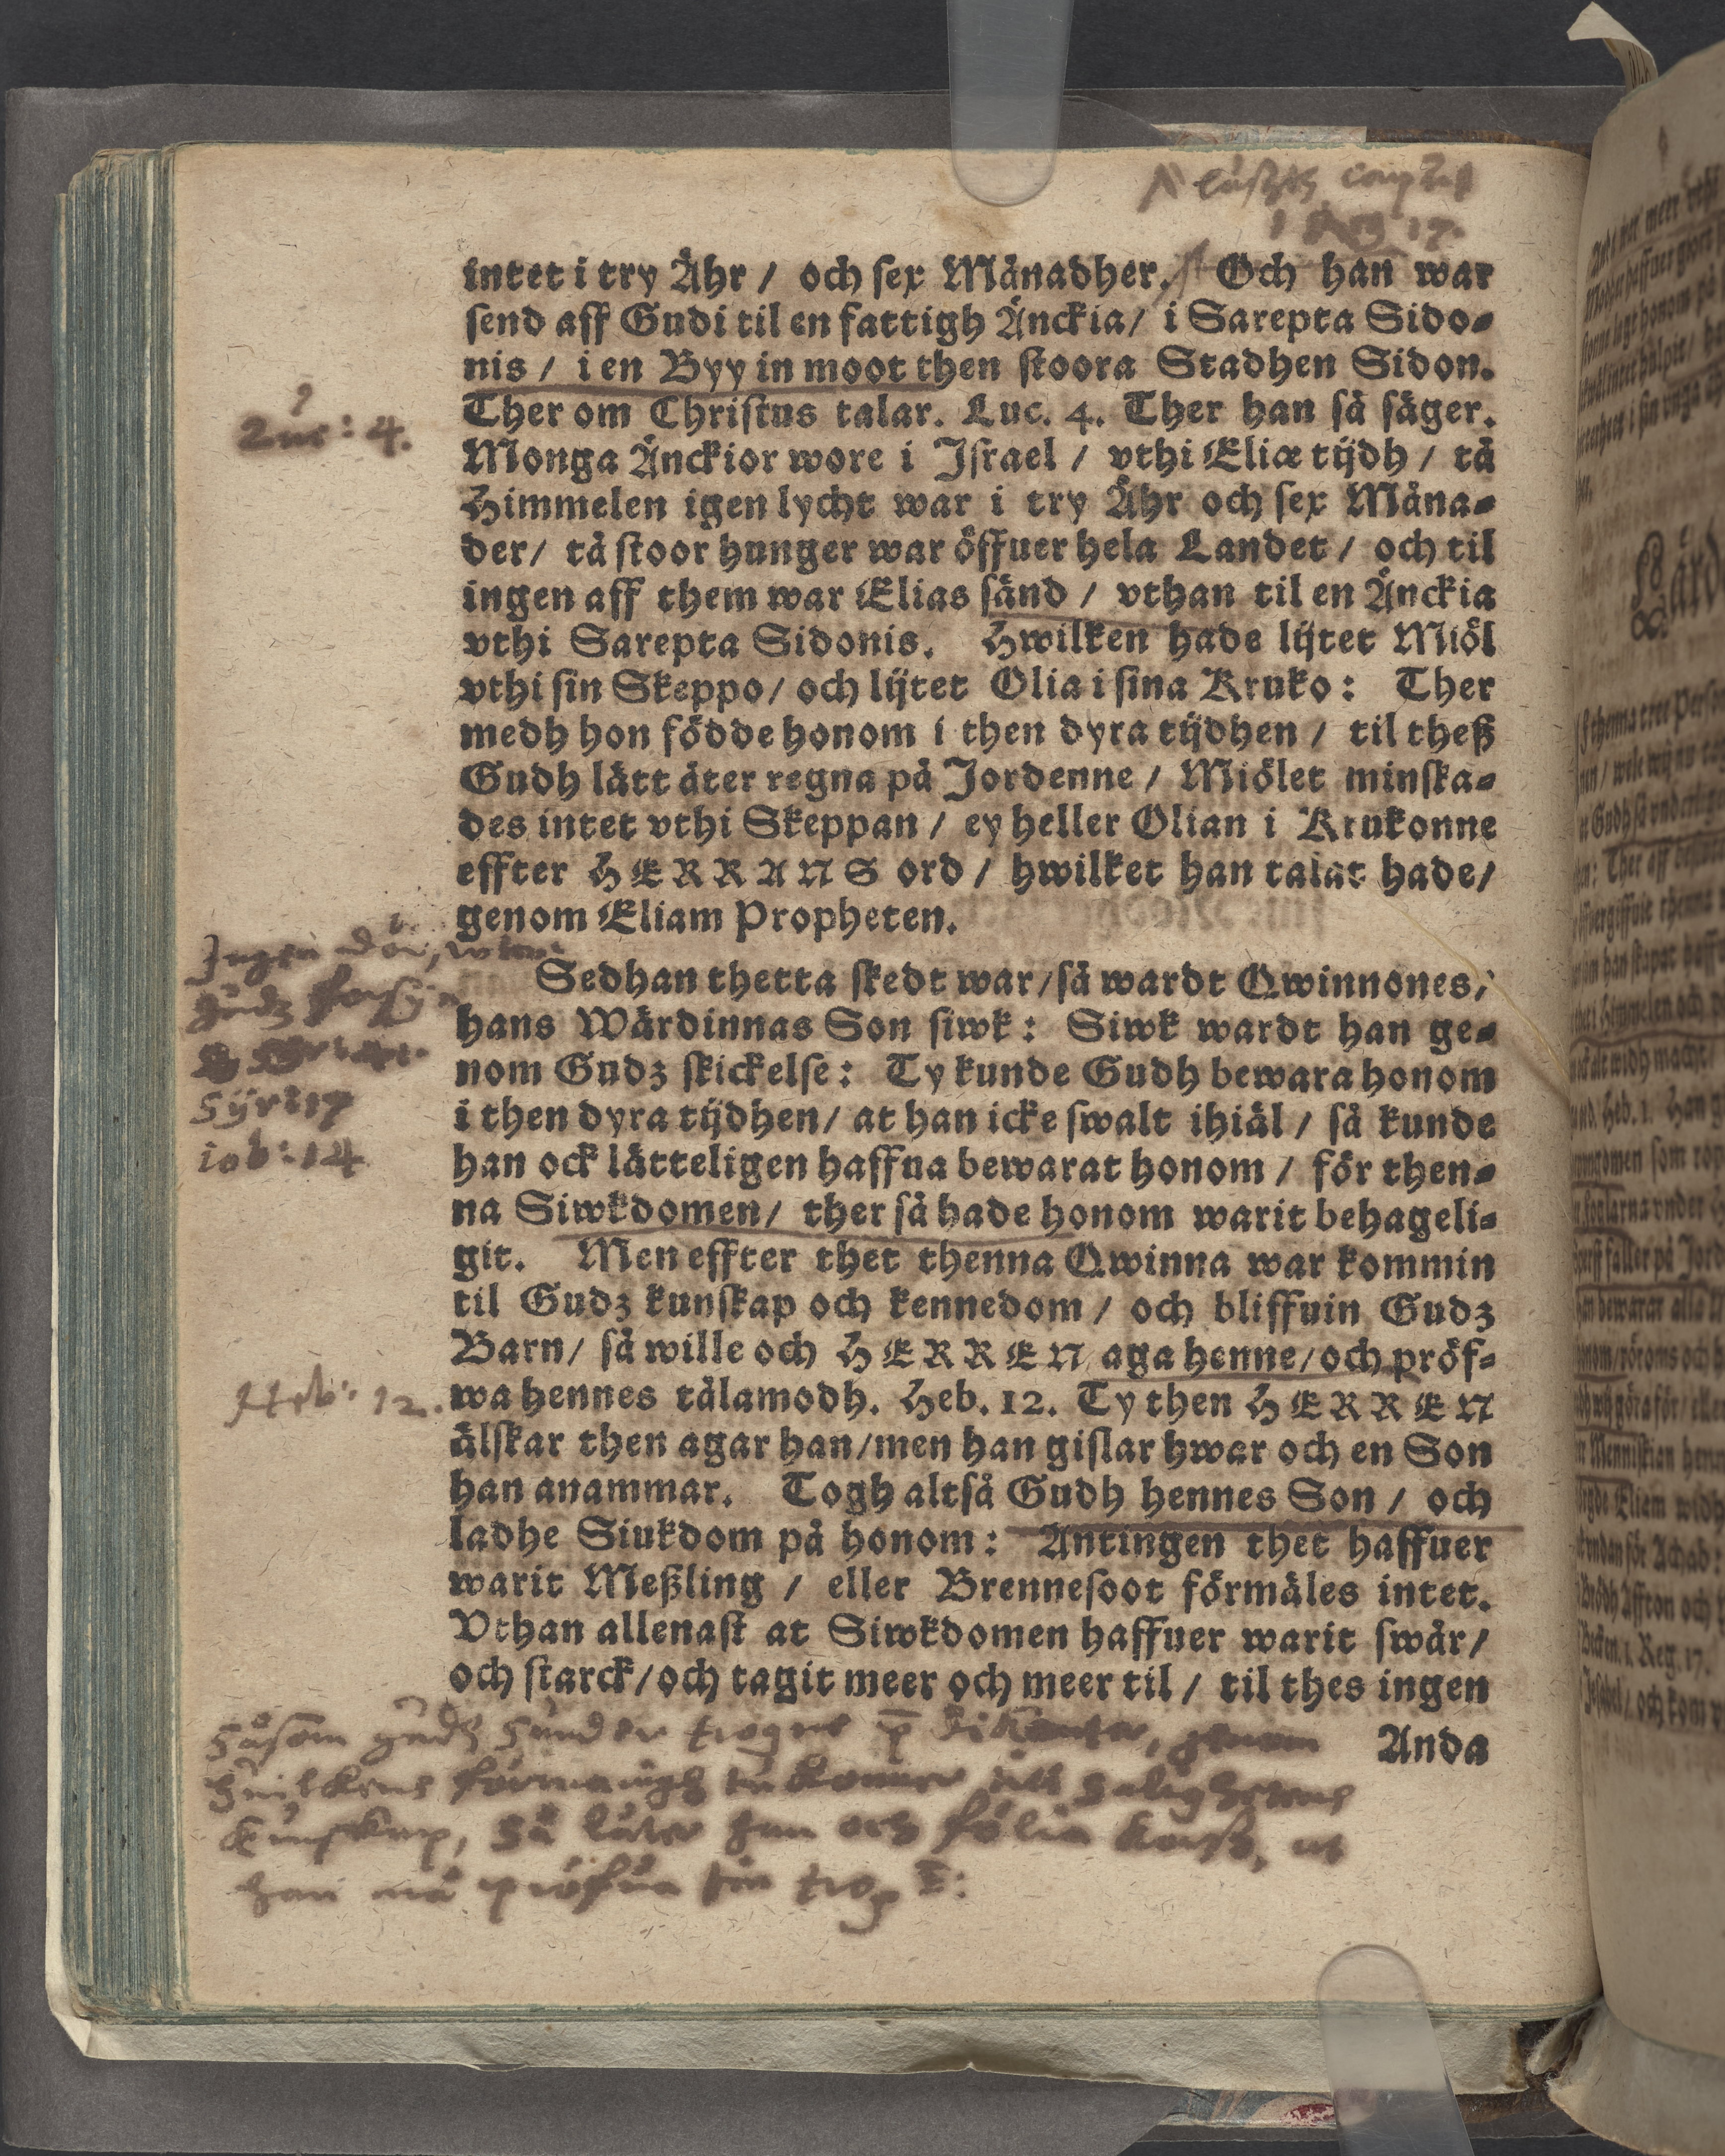 1 Reg 17.
intet i try Åhr / och sex Månadher. Och han war
send aff Gudi til en fattigh Änckia / i Sarepta Sido-
nis / i en Byy in moot then stoora Stadhen Sidon.
Luc: 4.
Ther om Christus talar. Luc. 4. Ther han så säger.
Monga Änckior wore i Israel / vthi Eliæ tijdh / tå
Himmelen igen lycht war i try Åhr och sex Måna-
der / tå stoor hunger war öffuer hela Landet / och til
ingen aff them war Elias sänd / vthan til en Änckia
vthi Sarepta Sidonis. Hwilken hade lijtet Miöl
vthi sin Skeppo / och lijtet Olia i sina Kruko: Ther
medh hon födde honom i then dyra tijdhen / til theß
Gudh lätt åter regna på Jordenne / Miölet minska-
des intet vthi Skeppan / ey heller Olian i Krukonne
effter HERRANS ord / hwilket han talat hade /
genom Eliam Propheten.
Ingen dör, utan
Gudz försyn
Syr: 17
iob: 14
Sedhan thetta skedt war / så wardt Qwinnones /
hans Wärdinnas Son siwk: Siwk wardt han ge-
nom Gudz skickelse: Ty kunde Gudh bewara honom
i then dyra tijdhen / at han icke swalt ihiäl / så kunde
han ock lätteligen haffua bewarat honom / för then-
na Siwkdomen / ther så hade honom warit behageli-
git. Men effter thet thenna Qwinna war kommin
til Gudz kunskap och kennedom / och bliffuin Gudz
Barn / så wille och HERREN aga henne / och pröf-
Heb: 12.
wa hennes tålamodh. Heb. 12. Ty then HERREN
älskar then agar han / men han gislar hwar och en Son
han anammar. Togh altså Gudh hennes Son / och
ladhe Siukdom på honom: Antingen thet haffuer
warit Meßling / eller Brennesoot förmäles intet.
Vthan allenast at Siwkdomen haffuer warit swår /
och starck / och tagit meer och meer til / til thes ingen
Anda
såsom gudz sänder trogne genom
huilkens kommer till salighetens
kunskap, så låter han och fölia korss, at
han må pröfua